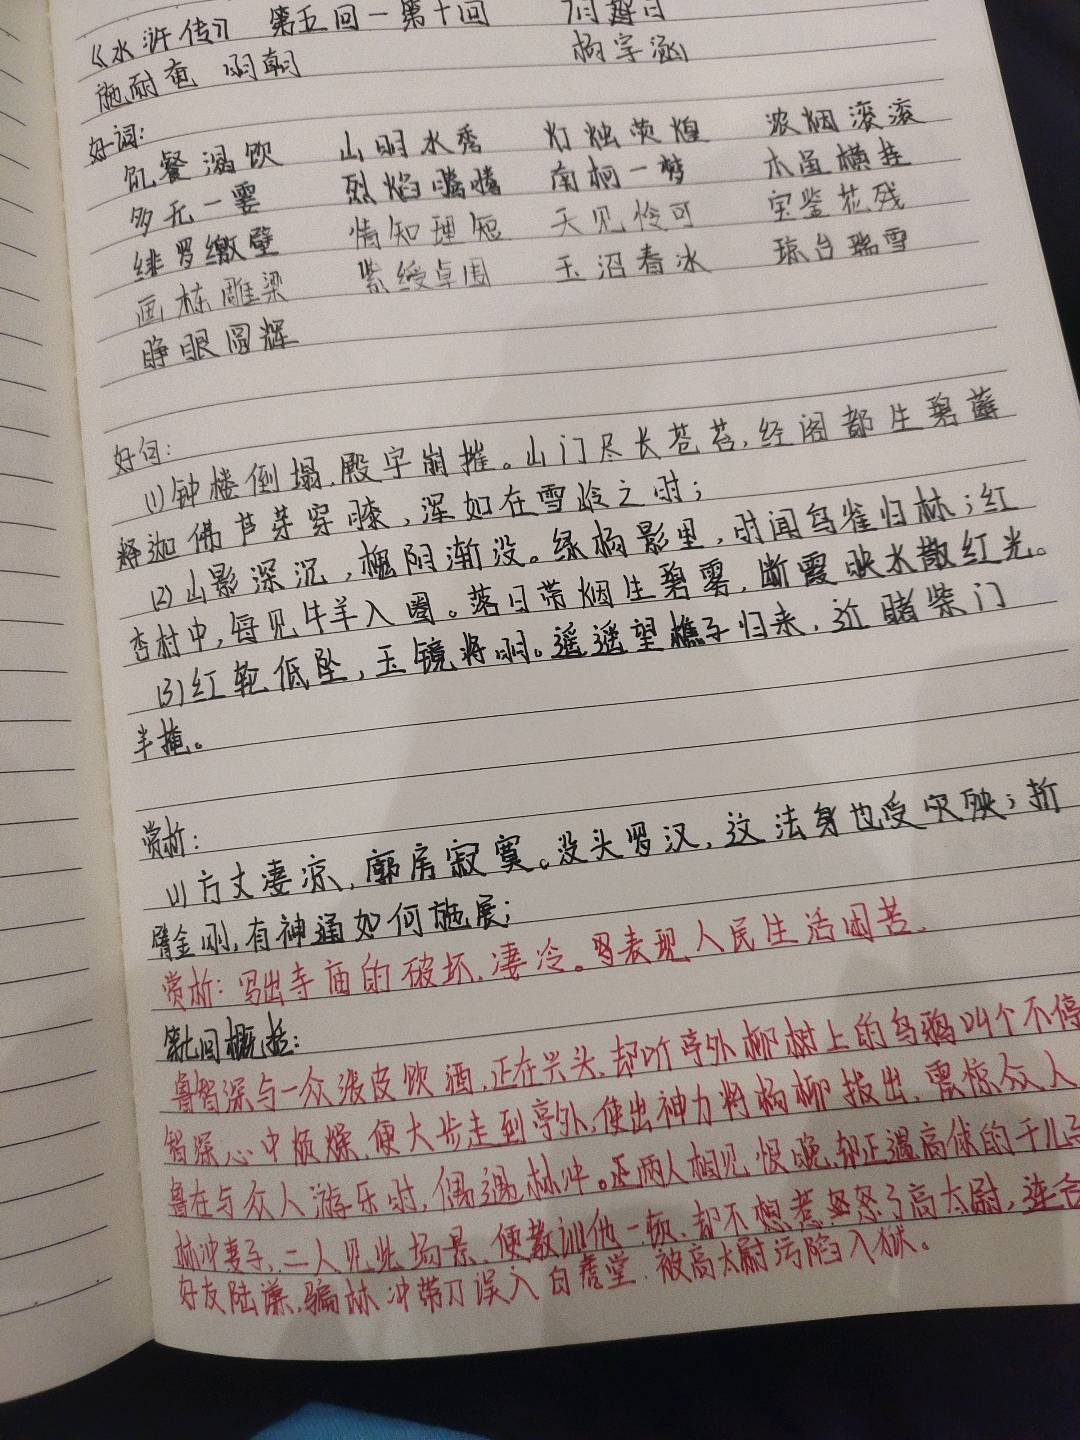 《水浒传》 第五回一第十回
施耐奄 明朝 杨宇涵
好词:
饥餐渴饮 山明水秀 灯烛荧煌 浓烟滚滚
多无一霎 烈焰腾腾 南柯一梦 木虽横挂
绯罗缴壁 情知理短 天见怜可 宝鉴花残
画栋雕梁 紫绶卓围 玉沼春冰 琼台瑞雪
睁眼圆辉
好句:
(1)钟楼倒塌,殿宇崩摧。山门尽长苍苔,经阁都生碧藓
释迦佛芦芽穿膝,浑如在雪岭之时;
(2)山影深沉,槐阴渐没。绿杨影里,时闻鸟雀归林;红
杏村中,每见牛羊入圈。落日带烟生碧雾,断霞映水散红光。
(3)红轮低坠,玉镜将明。遥遥望樵子归来,近睹柴门
半掩。
赏析:
(1)方丈凄凉,廓房寂寞。没头罗汉,这法身也受灾殃;折
臂金刚,有神通如何施展;
赏析:写出寺庙的破坏,凄冷。 表现人民生活困苦.
第七回概括:
鲁智深与一众泼皮饮酒,正在兴头,却听亭外柳树上的乌鸦叫个不停
智深心中烦燥,便大步走到亭外,使出神力将杨柳拔出,震惊众人
鲁在与众人游乐时,偶遇林冲。还两人相见恨晚,却正遇高俅的干儿子
林冲妻子,二人见此场景,便教训他一顿,却不想惹怒了高太尉,连合
好友陆谦,骗林冲带刀误入白虎堂,被高太尉污陷入狱。